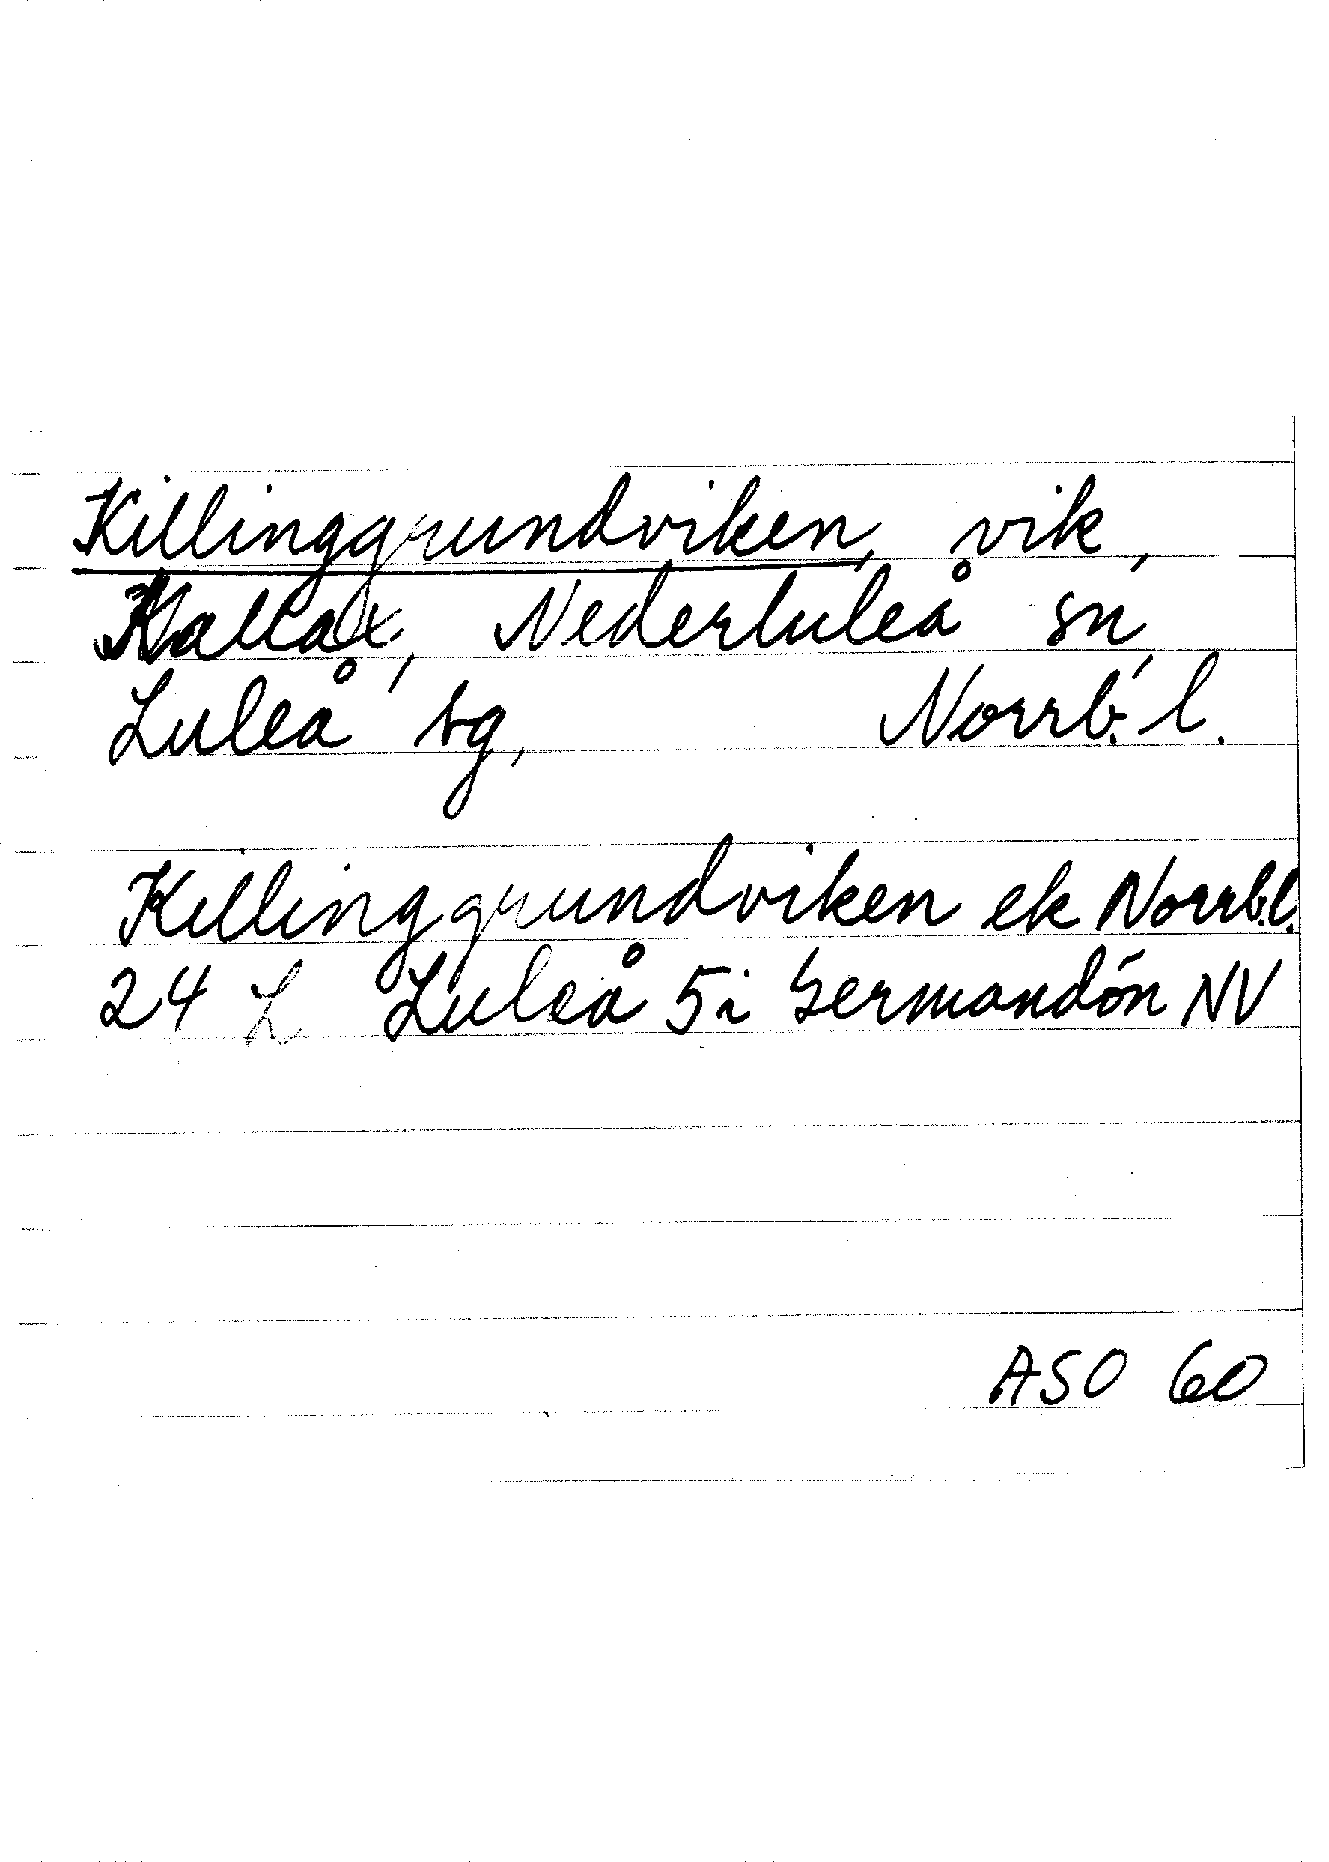 Killinggrundviken, vik,
Kallax, Nederluleå sn,
Luleå tg, Norrb. l.
Killinggrundviken ek Norrb.l.
24 L Luleå 5i Germandön NV
ASO 60